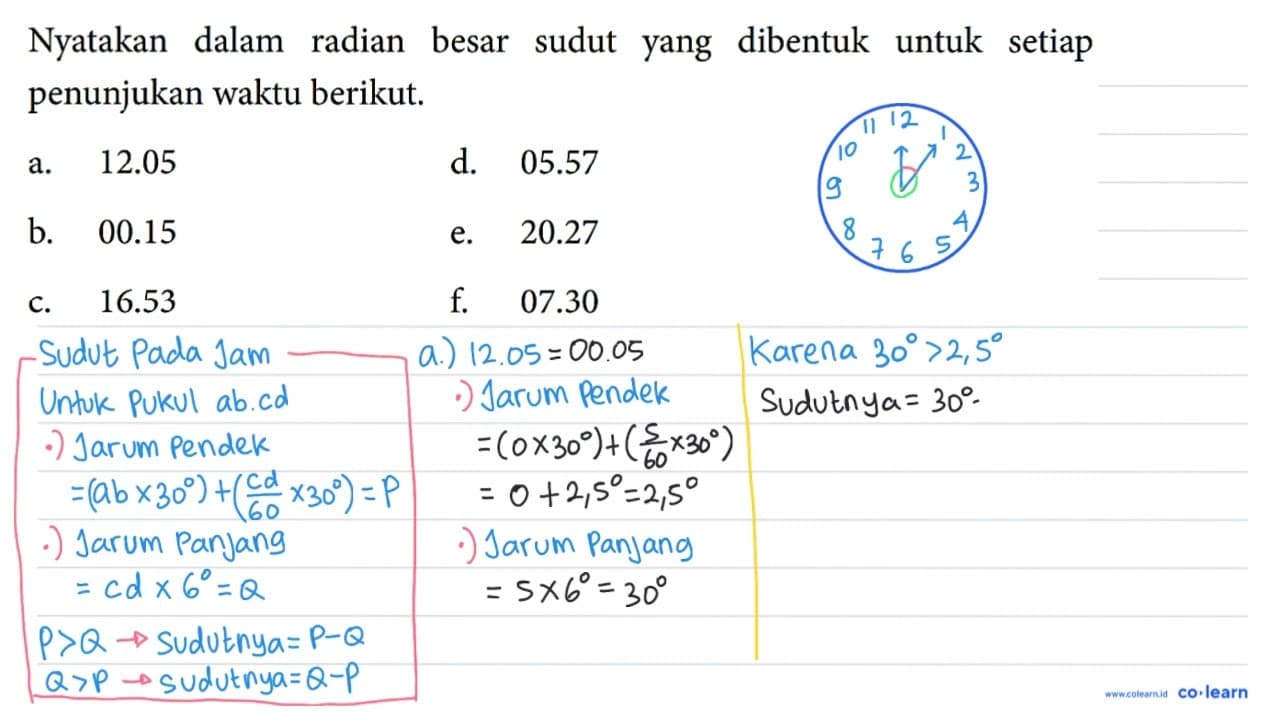 Nyatakan dalam radian besar sudut yang dibentuk untuk setiap
penunjukan waktu berikut.
a. 12.05 d. 05.57
b. 00.15 e. 20.27
c. 16.53 f. 07.30
11 12 1
10 2
9 3
8 4
7 6 5
Sudut Pada Jam
Untuk Pukul ab.cd
•) Jarum Pendek
=(ab×30°)+(cd/60 ×30°)=P
•) Jarum Panjang
= cd × 6° = Q
P>Q → Sudutnya= P-Q
Q>P → Sudutnya=Q-P
a.) 12.05 = 00.05
•) Jarum Pendek
=(0×30°)+(5/60×30°)
= 0 + 2,5°=2,5°
•) Jarum Panjang
= 5×6° = 30°
Karena 30° > 2,5°
Sudutnya = 30°-
www.colearn.id co·learn